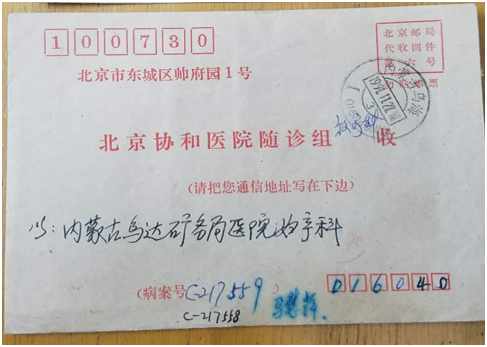 100730
北京邮局
代收回件
第六号
北京市东城区帅府园1号
内蒙古乌海
1991.11.22
北京协和医院随诊组 收
(请把您通信地址写在下边)
内蒙古乌达矿务局医院妇产科
(病案号C-217559
016040
C-217558